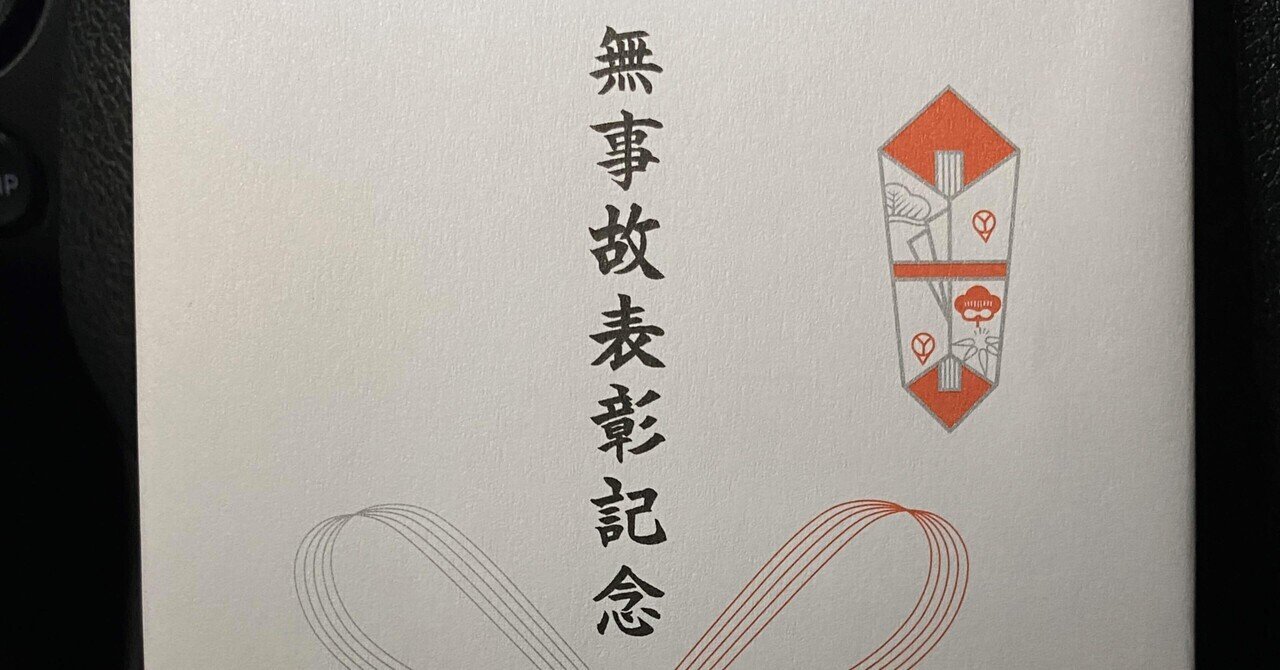 無事故表彰記念